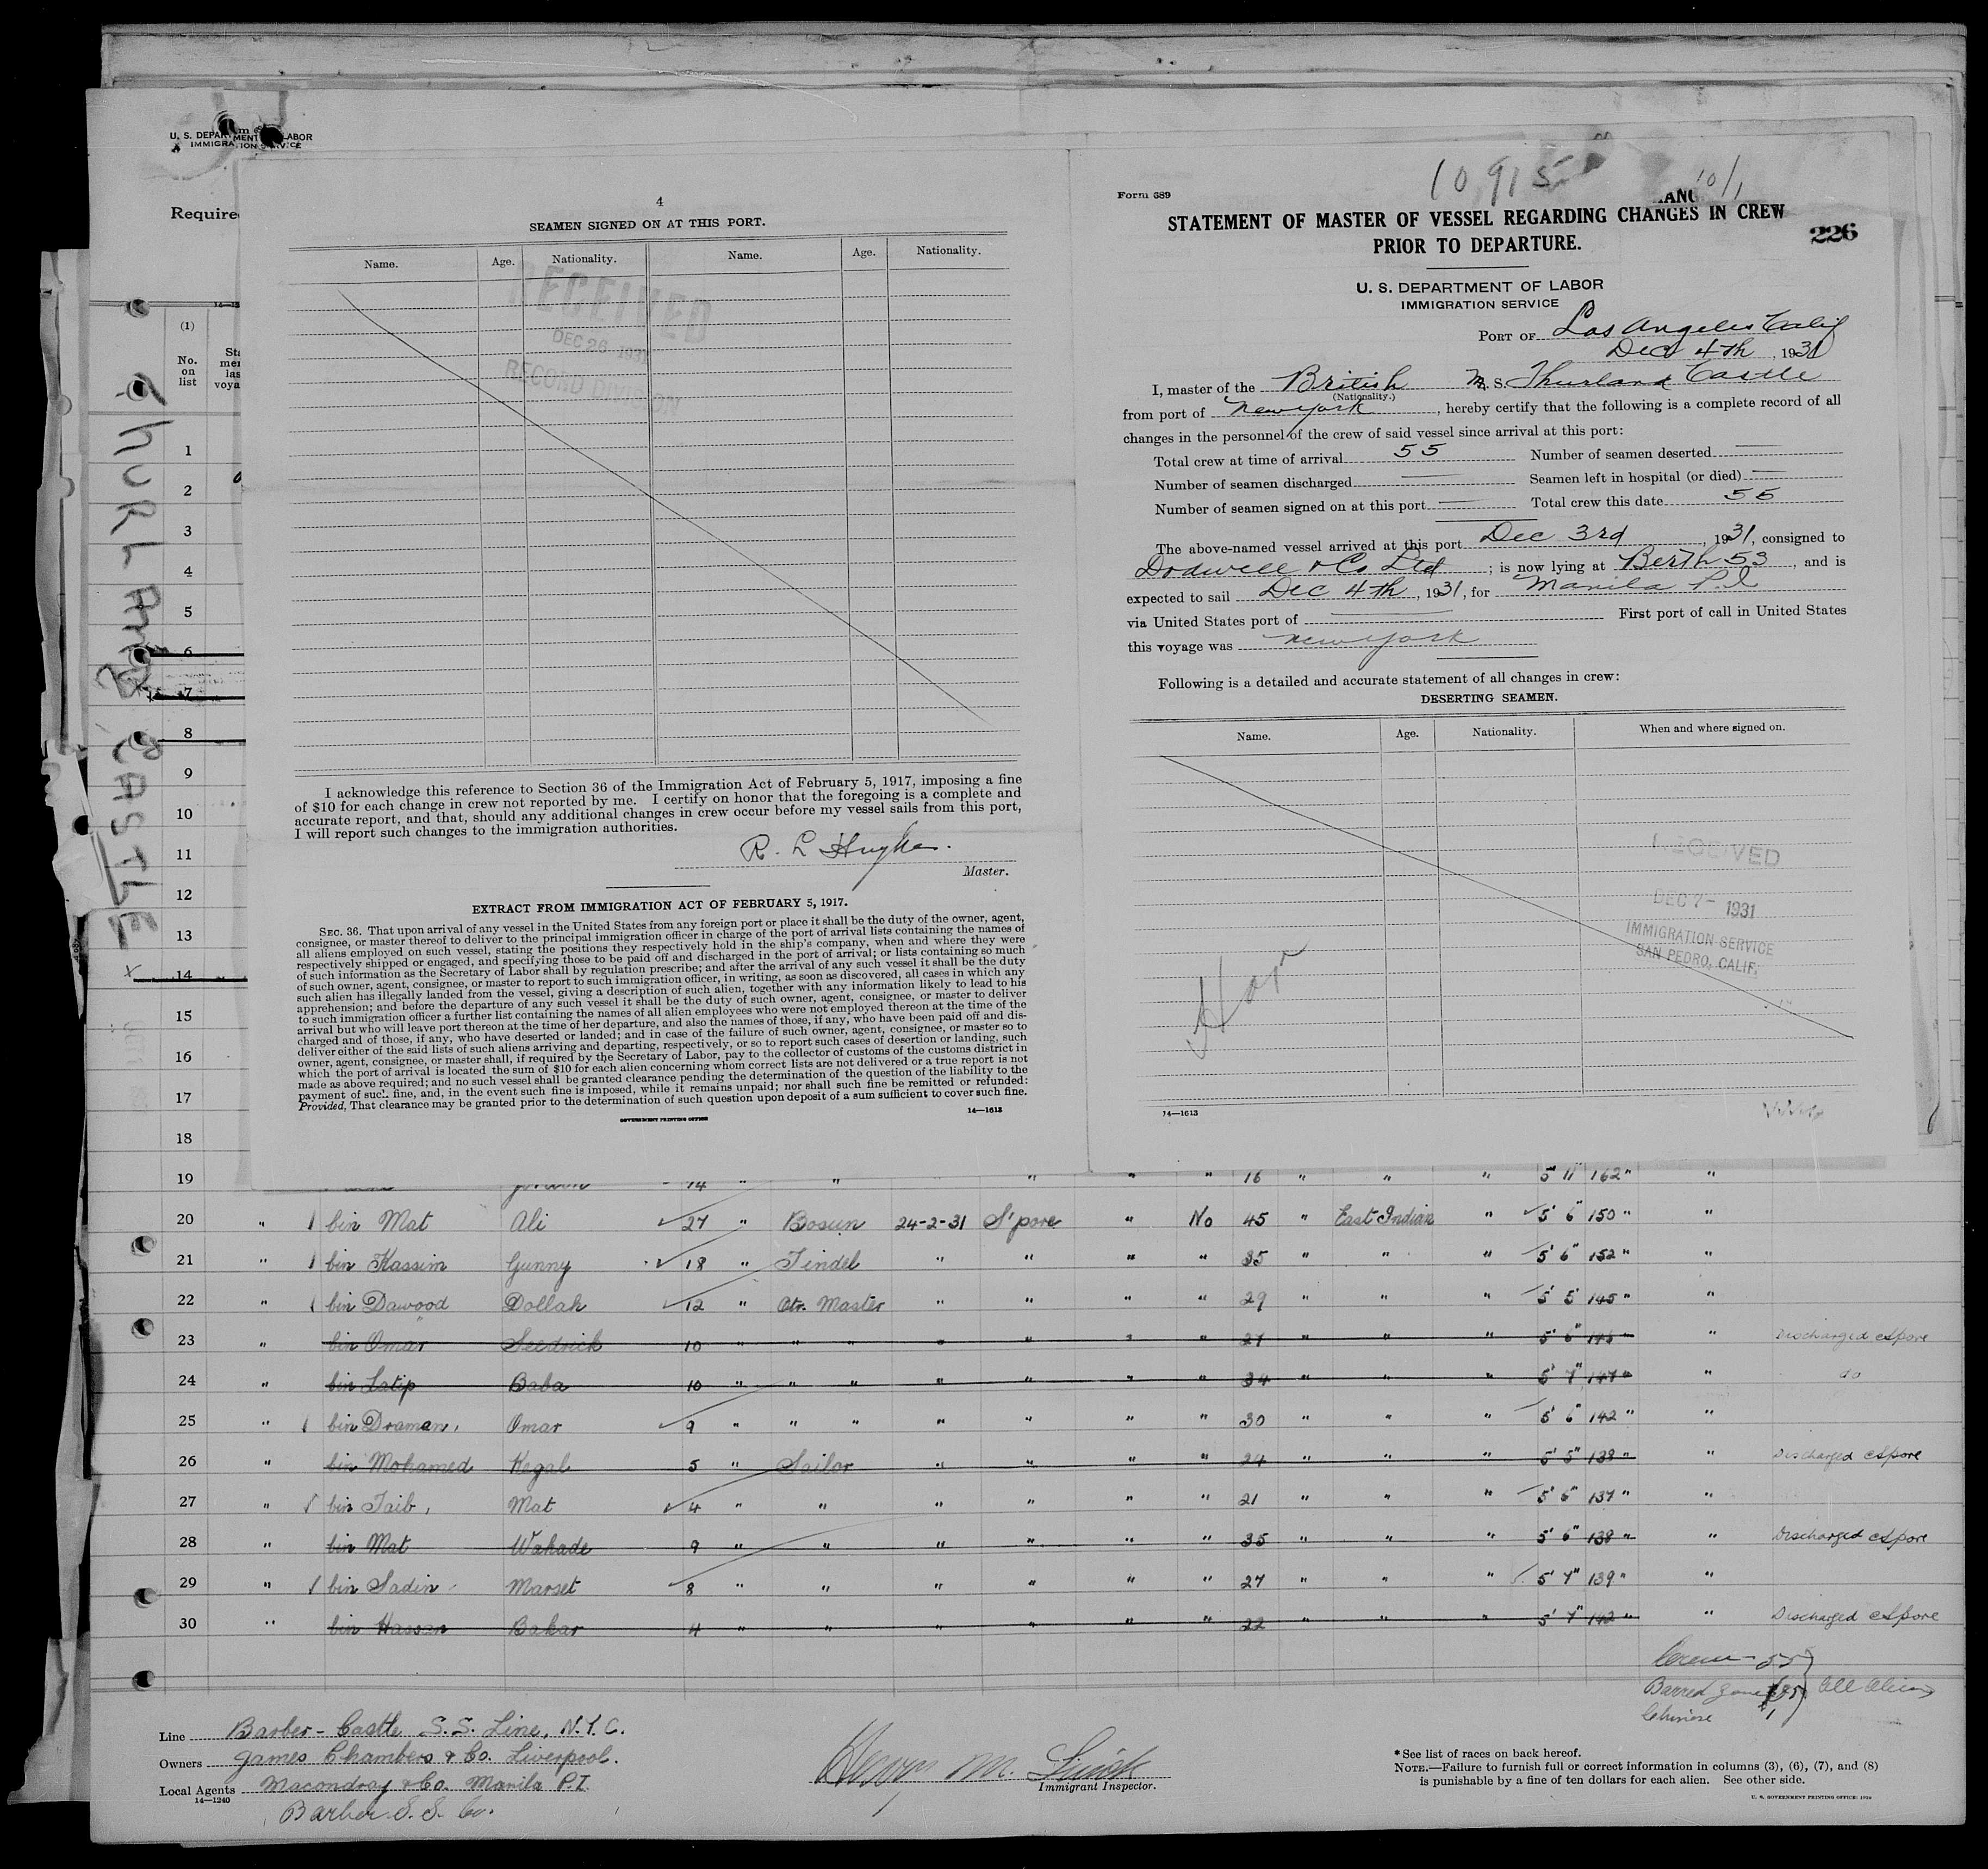 U. S. DEPARTMENT LABOR
IMMIGRATION SERVICE
Require
(1)
No.
on
list
THURLAND CASTLE
1
2
3
4
5
6
7
8
9
10
11
12
13
14
15
16
17
18
4
SEAMEN SIGNED ON AT THIS PORT.
Name. Age. Nationality. Name. Age. Nationality.
RECEIVED
DEC 26 1931
RECORD DIVISION
I acknowledge this reference to Section 36 of the Immigration Act of February 5, 1917, imposing a fine
of $10 for each change in crew not reported by me. I certify on honor that the foregoing is a complete and
accurate report, and that, should any additional changes in crew occur before my vessel sails from this port,
I will report such changes to the immigration authorities.
R. L Hughes.
Master.
EXTRACT FROM IMMIGRATION ACT OF FEBRUARY 5, 1917.
SEC. 36. That upon arrival of any vessel in the United States from any foreign port or place it shall be the duty of the owner, agent,
consignee, or master thereof to deliver to the principal immigration officer in charge of the port of arrival lists containing the names of
all aliens employed on such vessel, stating the positions they respectively hold in the ship's company, when and where they were
respectively shipped or engaged, and specifying those to be paid off and discharged in the port of arrival; or lists containing so much
of such information as the Secretary of Labor shall by regulation prescribe; and after the arrival of any such vessel it shall be the duty
of such owner, agent, consignee, or master to report to such immigration officer, in writing, as soon as discovered, all cases in which any
such alien has illegally landed from the vessel, giving a description of such alien, together with any information likely to lead to his
apprehension; and before the departure of any such vessel it shall be the duty of such owner, agent, consignee, or master to deliver
to such immigration officer a further list containing the names of all alien employees who were not employed thereon at the time of the
arrival but who will leave port thereon at the time of her departure, and also the names of those, if any, who have been paid off and dis-
charged and of those, if any, who have deserted or landed; and in case of the failure of such owner, agent, consignee, or master so to
deliver either of the said lists of such aliens arriving and departing, respectively, or so to report such cases of desertion or landing, such
owner, agent, consignee, or master shall, if required by the Secretary of Labor, pay to the collector of customs of the customs district in
which the port of arrival is located the sum of $10 for each alien concerning whom correct lists are not delivered or a true report is not
made as above required; and no such vessel shall be granted clearance pending the determination of the question of the liability to the
payment of such fine, and, in the event such fine is imposed, while it remains unpaid; nor shall such fine be remitted or refunded:
Provided, That clearance may be granted prior to the determination of such question upon deposit of a sum sufficient to cover such fine.
GOVERNMENT PRINTING OFFICE 14—1613
10915 10/1
Form 689
STATEMENT OF MASTER OF VESSEL REGARDING CHANGES IN CREW
PRIOR TO DEPARTURE.
226
U. S. DEPARTMENT OF LABOR
IMMIGRATION SERVICE
PORT OF Los Angeles Calif
Dec 4th, 1931
I, master of the British M. S. Thurland Castle
(Nationality.)
from port of New York, hereby certify that the following is a complete record of all
changes in the personnel of the crew of said vessel since arrival at this port:
Total crew at time of arrival 55 Number of seamen deserted —
Number of seamen discharged — Seamen left in hospital (or died) —
Number of seamen signed on at this port — Total crew this date 55
The above-named vessel arrived at this port Dec 3rd, 1931, consigned to
Dodwell & Co Ltd; is now lying at Berth 53, and is
expected to sail Dec 4th, 1931, for Manila P.I
via United States port of — First port of call in United States
this voyage was New York
Following is a detailed and accurate statement of all changes in crew:
DESERTING SEAMEN.
Name. Age. Nationality. When and where signed on.
RECEIVED
DEC 7- 1931
IMMIGRATION SERVICE
SAN PEDRO, CALIF.
14—1613
19 14 " " " " " 16 " " " 5' 11" 162 " "
20 " bin Mat Ali 27 " Bosun 24-2-31 S'pore " No 45 " East Indian " 5' 6" 150 " "
21 " bin Kassim Gunny 18 " Tindel " " " " 35 " " " 5' 6" 152 " "
22 " bin Dawood Dollah 12 " Qtr. Master " " " " 29 " " " 5' 5" 145 " "
23 " bin Omar Seedrick 10 " " " " " " " 27 " " " 5' 6" 146 " " Discharged S'pore
24 " bin Latip Baba 10 " " " " " " " 34 " " " 5' 7" 147 " " do
25 " bin Draman, Omar 9 " " " " " " " 30 " " " 5' 6" 142 " "
26 " bin Mohamed Kegal 5 " Sailor " " " " 24 " " " 5' 5" 138 " " Discharged S'pore
27 " bin Taib, Mat 4 " " " " " " 21 " " " 5' 6" 137 " "
28 " bin Mat Wahade 9 " " " " " " 35 " " " 5' 6" 138 " " Discharged S'pore
29 " bin Sadin Marset 8 " " " " " " 27 " " " 5' 7" 139 " "
30 " bin Hassan Bakar 4 " " " " " " 22 " " " 5' 7" 142 " " Discharged S'pore
Crew - 55
Barred Zone All Aliens
Chinese 1
Line Barber-Castle S.S. Line, N.Y.C.
Owners James Chambers & Co. Liverpool.
Local Agents Macondray & Co. Manila P.I.
14—1240
Barber S. S. Co.
Henry M.
Immigrant Inspector.
* See list of races on back hereof.
NOTE.—Failure to furnish full or correct information in columns (3), (6), (7), and (8)
is punishable by a fine of ten dollars for each alien. See other side.
U. S. GOVERNMENT PRINTING OFFICE: 1930